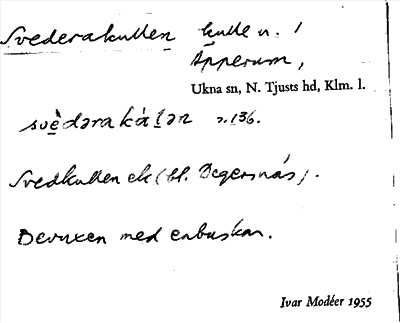 Svederakullen kulle n. 1
Äpperum,
Ukna sn, N. Tjusts hd, Klm. l.
svèdərakálən 2.136.
Svedkullen ek (bl. Degersnäs).
Bevuxen med enbuskar.
Ivar Modéer 1955